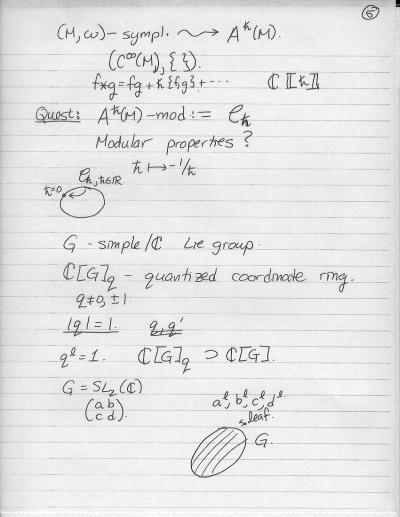 5
(M, ω) - sympl. ⟿ A^ħ(M).
(C^∞(M), { }).
f*g = fg + ħ{f,g} + ···   ℂ[[ħ]]
Quest: A^ħ(M)-mod := 𝒞_ħ
Modular properties?
ħ ↦ -1/ħ
𝒞_ħ, ħ∈ℝ
ħ=0
G - simple/ℂ Lie group.
ℂ[G]_q - quantized coordinate ring.
q≠0, ±1
|q| = 1.   q, q'
q^ℓ = 1.   ℂ[G]_q ⊃ ℂ[G].
G = SL_2(ℂ)
(a b
c d).
a^ℓ, b^ℓ, c^ℓ, d^ℓ
s. leaf.
G.